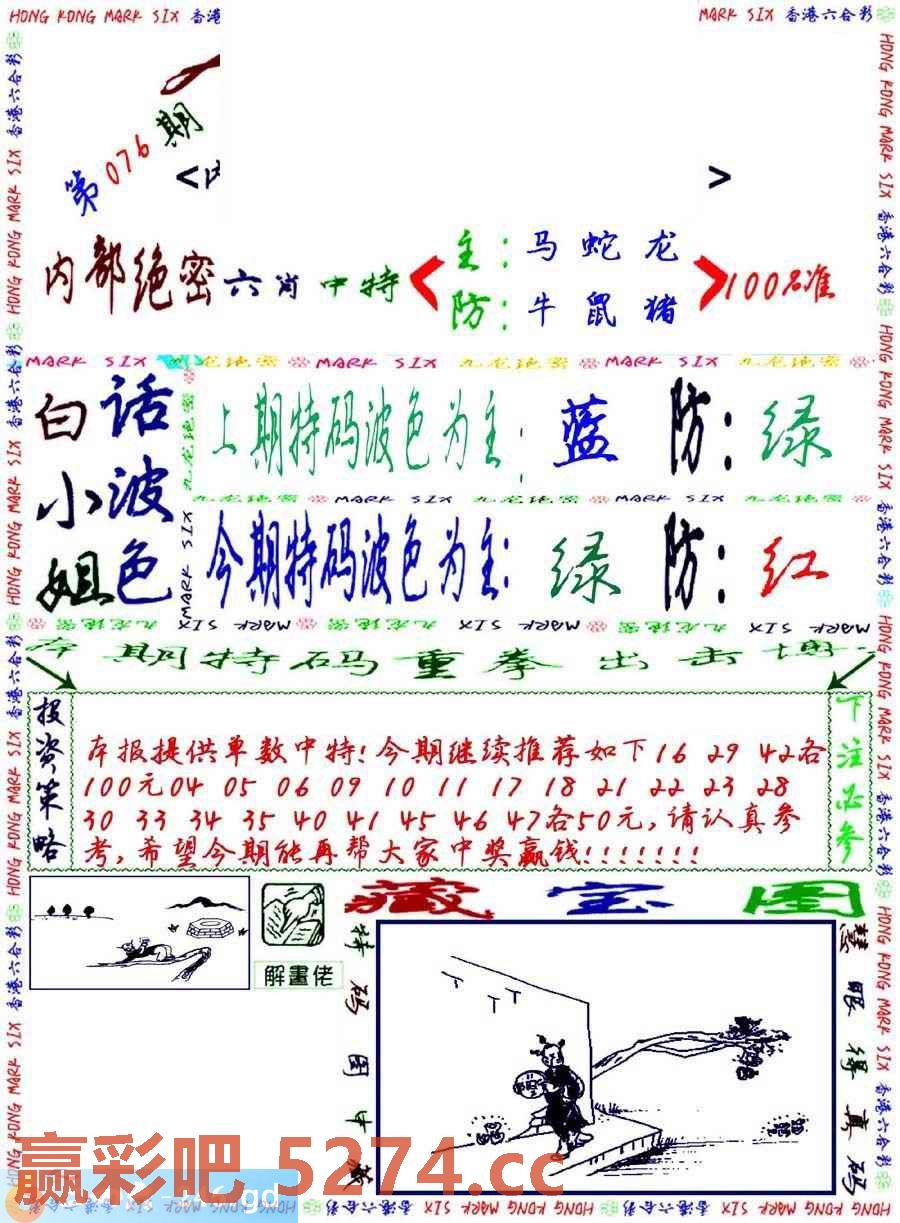 HONG KONG MARK SIX 香港
MARK SIX 香港六合彩
第076期
<
>
内部绝密六肖中特
主:马蛇龙
防:牛鼠猪
100%准
MARK SIX 九龙绝密 MARK SIX 九龙绝密 MARK SIX 九龙绝密
白小姐
话波色
上期特码波色为主: 蓝 防: 绿
九龙绝密 MARK SIX 九龙绝密 MARK SIX
今期特码波色为主: 绿 防: 红
MARK SIX 九龙绝密 MARK SIX 九龙绝密 MARK SIX
本期特码重拳出击
投资策略
本报提供单数中特!今期继续推荐如下16 29 42各
100元04 05 06 09 10 11 17 18 21 22 23 28
30 33 34 35 40 41 45 46 47各50元,请认真参
考,希望今期能再帮大家中奖赢钱!!!!!!!
下注必参
藏宝图
解畫佬
特码图中
慧眼得真码
赢彩吧 5274.cc
HONG KONG MARK SIX 香港六合彩